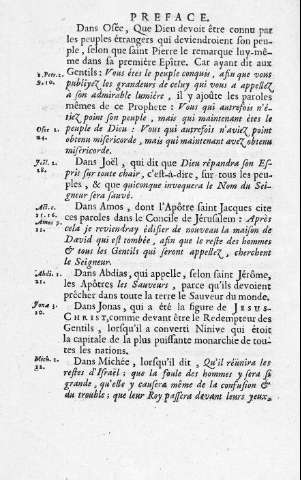 PREFACE.
Dans Osée, Que Dieu devoit être connu par
les peuples étrangers qui deviendroient son peu-
ple, selon que saint Pierre le remarque luy-mê-
me dans sa premiere Epître. Car ayant dit aux
1. Petr. 2. Gentils : Vous êtes le peuple conquis, afin que vous
9. 10. publiyez les grandeurs de celuy qui vous a appellez
à son admirable lumiere, il y ajoûte les paroles
mêmes de ce Prophete : Vous qui autrefois n'é-
tiez point son peuple, mais qui maintenant êtes le
Osée 2. peuple de Dieu : Vous qui autrefois n'aviez point
24. obtenu misericorde, mais qui maintenant avez obtenu
misericorde.
Joël. 2. Dans Joël, qui dit que Dieu répandra son Es-
28. prit sur toute chair, c'est-à-dire, sur tous les peu-
ples, & que quiconque invoquera le Nom du Sei-
gneur sera sauvé.
Act. 5. Dans Amos, dont l'Apôtre saint Jacques cite
15. 16. ces paroles dans le Concile de Jérusalem : Après
Amos 9. cela je reviendray édifier de nouveau la maison de
11. David qui est tombée, afin que le reste des hommes
& tous les Gentils qui seront appellez, cherchent
le Seigneur.
Abdi. 1. Dans Abdias, qui appelle, selon saint Jérôme,
21. les Apôtres les Sauveurs, parce qu'ils devoient
prêcher dans toute la terre le Sauveur du monde.
Jona 3. Dans Jonas, qui a été la figure de JESUS-
10. CHRIST, comme devant être le Redempteur des
Gentils, lorsqu'il a converti Ninive qui étoit
la capitale de la plus puissante monarchie de tou-
tes les nations.
Mich. 2. Dans Michée, lorsqu'il dit, Qu'il réünira les
12. restes d'Israël ; que la foule des hommes y sera si
grande, qu'elle y causera même de la confusion &
du trouble ; que leur Roy passera devant leurs yeux,